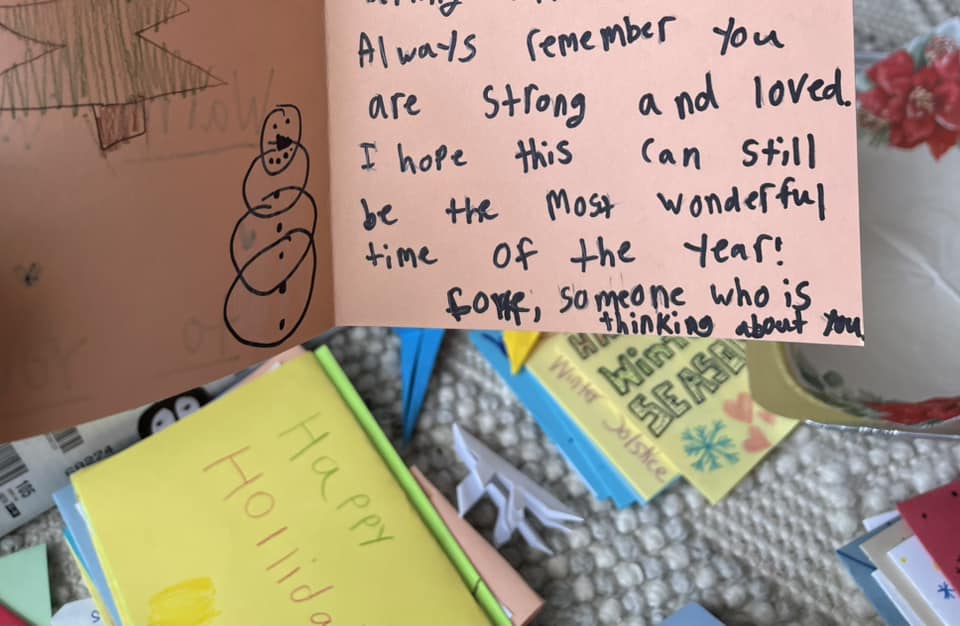 Always remember you
are strong and loved.
I hope this can still
be the most wonderful
time of the year!
Love, someone who is
thinking about you
Winter
SEASON
Winter Solstice
Happy
Hollida